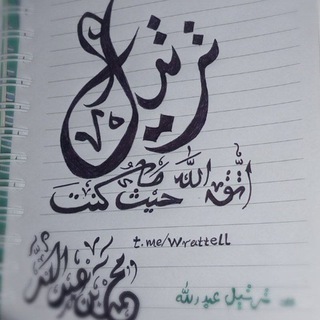 ترتيل
اتق الله حيث كنت
t.me/Wrattell
محمد بن عبد الله
ترتيل عبدالله